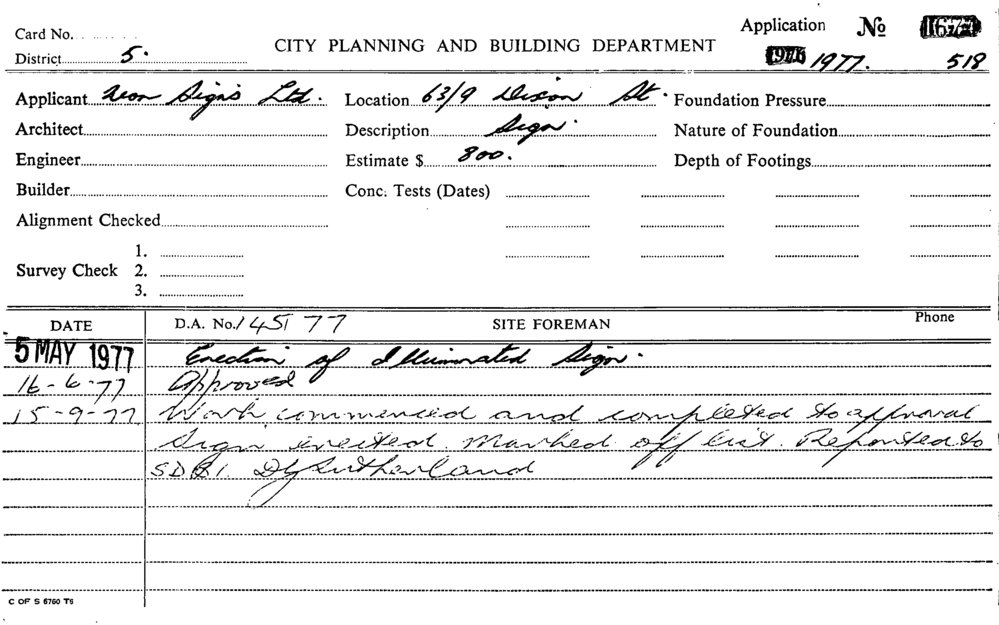 Card No.
District 5.
CITY PLANNING AND BUILDING DEPARTMENT
Application No
1977. 518
Applicant Neon Signs Ltd. Location 63/9 Dixon St. Foundation Pressure
Architect Description Sign. Nature of Foundation
Engineer Estimate $ 800. Depth of Footings
Builder Conc. Tests (Dates)
Alignment Checked
1.
Survey Check 2.
3.
DATE D.A. No. 145/77 SITE FOREMAN Phone
5 MAY 1977 Erection of Illuminated Sign.
16-6-77 Approved
15-9-77 Work commenced and completed to approval
Sign erected. Marked off list. Reported to
SDBI. Sutherland
C OF S 6760 T6